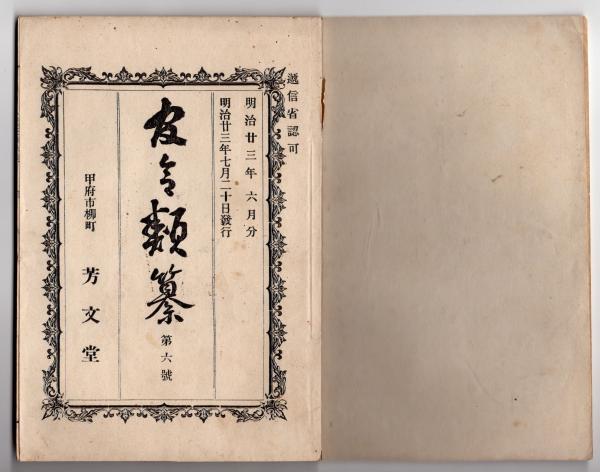 遞信省認可
明治廿三年六月分
明治廿三年七月二十日發行
官令類纂
第六號
甲府市柳町
芳文堂